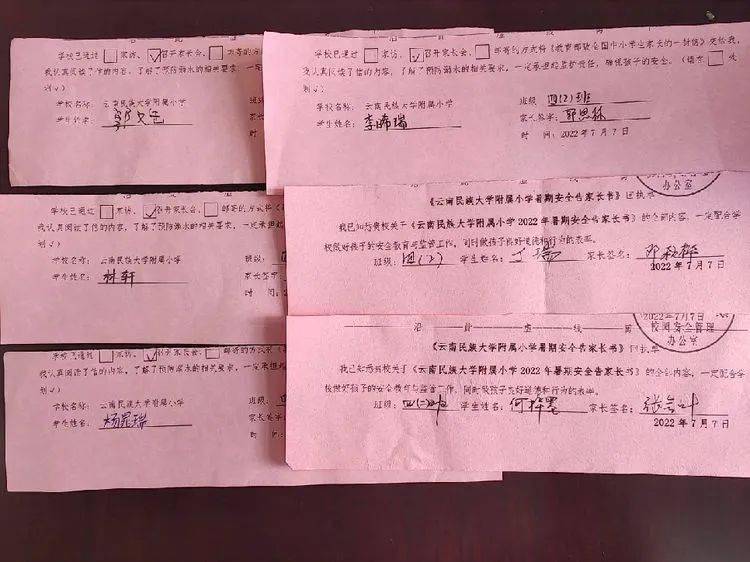 学校已通过 家访、 召开家长会、 邮寄的方式将《
我认真阅读了信的内容,了解了预防溺水的相关要求,一定
划√)
学校名称: 云南民族大学附属小学
学生姓名:
家长
时
学校已通过 家访、 召开家长会、 邮寄的方式将《
我认真阅读了信的内容,了解了预防溺水的相关要求,一定承担起
划√)
学校名称: 云南民族大学附属小学
班级:
学生姓名: 林轩
家长签字
时 间:
学校已通过 家访、 召开家长会、 邮寄的方式将
我认真阅读了信的内容,了解了预防溺水的相关要求,一定承担
划√)
学校名称: 云南民族大学附属小学
班级
学生姓名: 杨昆瑞
家长签字
时间:
学校已通过 家访、 召开家长会、 邮寄的方式将《教育部致全国中小学生家长的一封信》交给我,
我认真阅读了信的内容,了解了预防溺水的相关要求,一定承担起监护责任,确保孩子的安全。(请在 处
划√)
学校名称: 云南民族大学附属小学
班级 四(2)班
学生姓名: 李晞瑞
家长签字: 邓思秝
时 间:2022年7月7日
办公室
《云南民族大学附属小学暑期安全告家长书》回执单
我已知悉贵校关于《云南民族大学附属小学2022年暑期安全告家长书》的全部内容,一定配合学
校做好孩子的安全教育与监管工作,同时做孩子良好道德和行为的表率。
班级: 四(2) 学生姓名: 丁瑞 家长签名:
2022年7月7日
2022年7月7日
沿 此 虚 线 剪
校园安全管理
办公室
《云南民族大学附属小学暑期安全告家长书》回执单
我已知悉贵校关于《云南民族大学附属小学2022年暑期安全告家长书》的全部内容,一定配合学
校做好孩子的安全教育与监管工作,同时做孩子良好道德和行为的表率。
班级: 四(二)班 学生姓名: 何梓墨 家长签名:
2022年7月7日